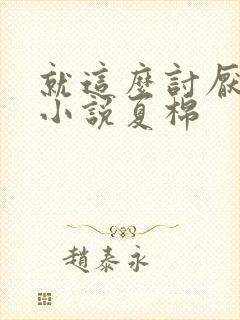 就這麼討厭
小說夏棉
趙泰永